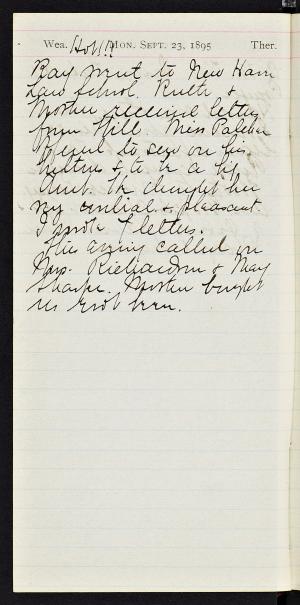 Wea. Hot!! Mon. Sept. 23, 1895 Ther.
Ray went to New Haven
Law School. Ruth &
Mother received letters
from Will. Miss
to see on his
& to be a
Aunt. He thought her
very cordial & pleasant.
I wrote 7 letters.
This evening called on
Mrs. Richardson & May
Sharpe. Mother bought
us root beer.